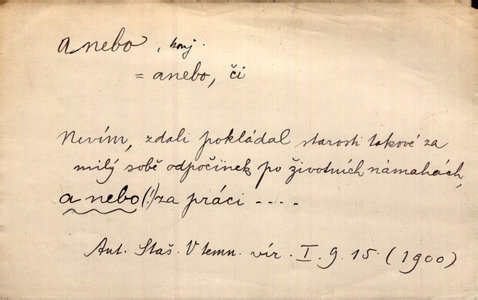 a nebo, konj.
= anebo, či
Nevím, zdali pokládal starosti takové za
milý sobě odpočinek po životních námahách,
a nebo (!) za práci ....
Ant. Staš. V temn. vír. I. 9. 15. (1900)